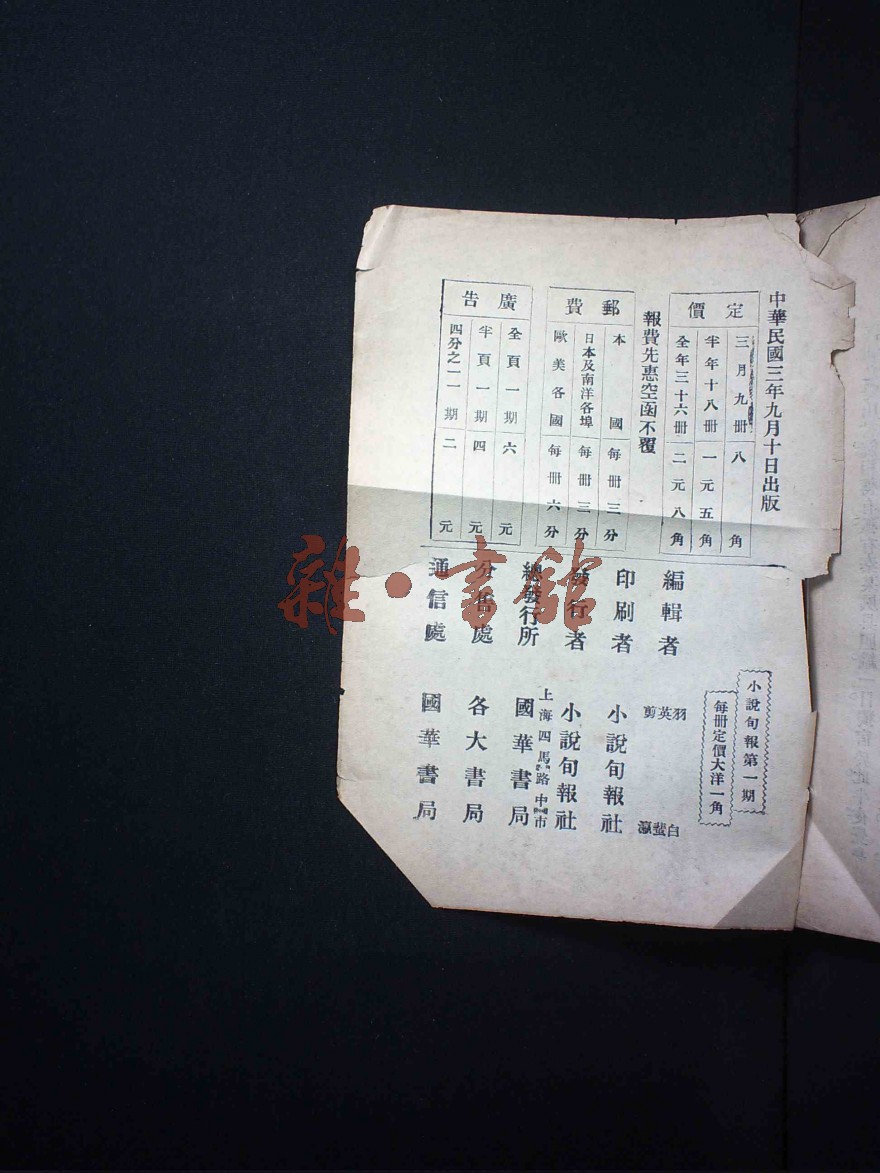 中華民國三年九月十日出版
定價
三月九冊八角
半年十八冊一元五角
全年三十六冊二元八角
報費先惠空函不覆
郵費
本國每冊三分
日本及南洋各埠每冊三分
歐美各國每冊六分
廣告
全頁一期六元
半頁一期四元
四分之一一期二元
小說旬報第一期
每冊定價大洋一角
編輯者
羽白
英蜚
剪瀛
印刷者小說旬報社
發行者小說旬報社
上海四馬路中市
總發行所國華書局
分售處各大書局
通信處國華書局
雜·書館